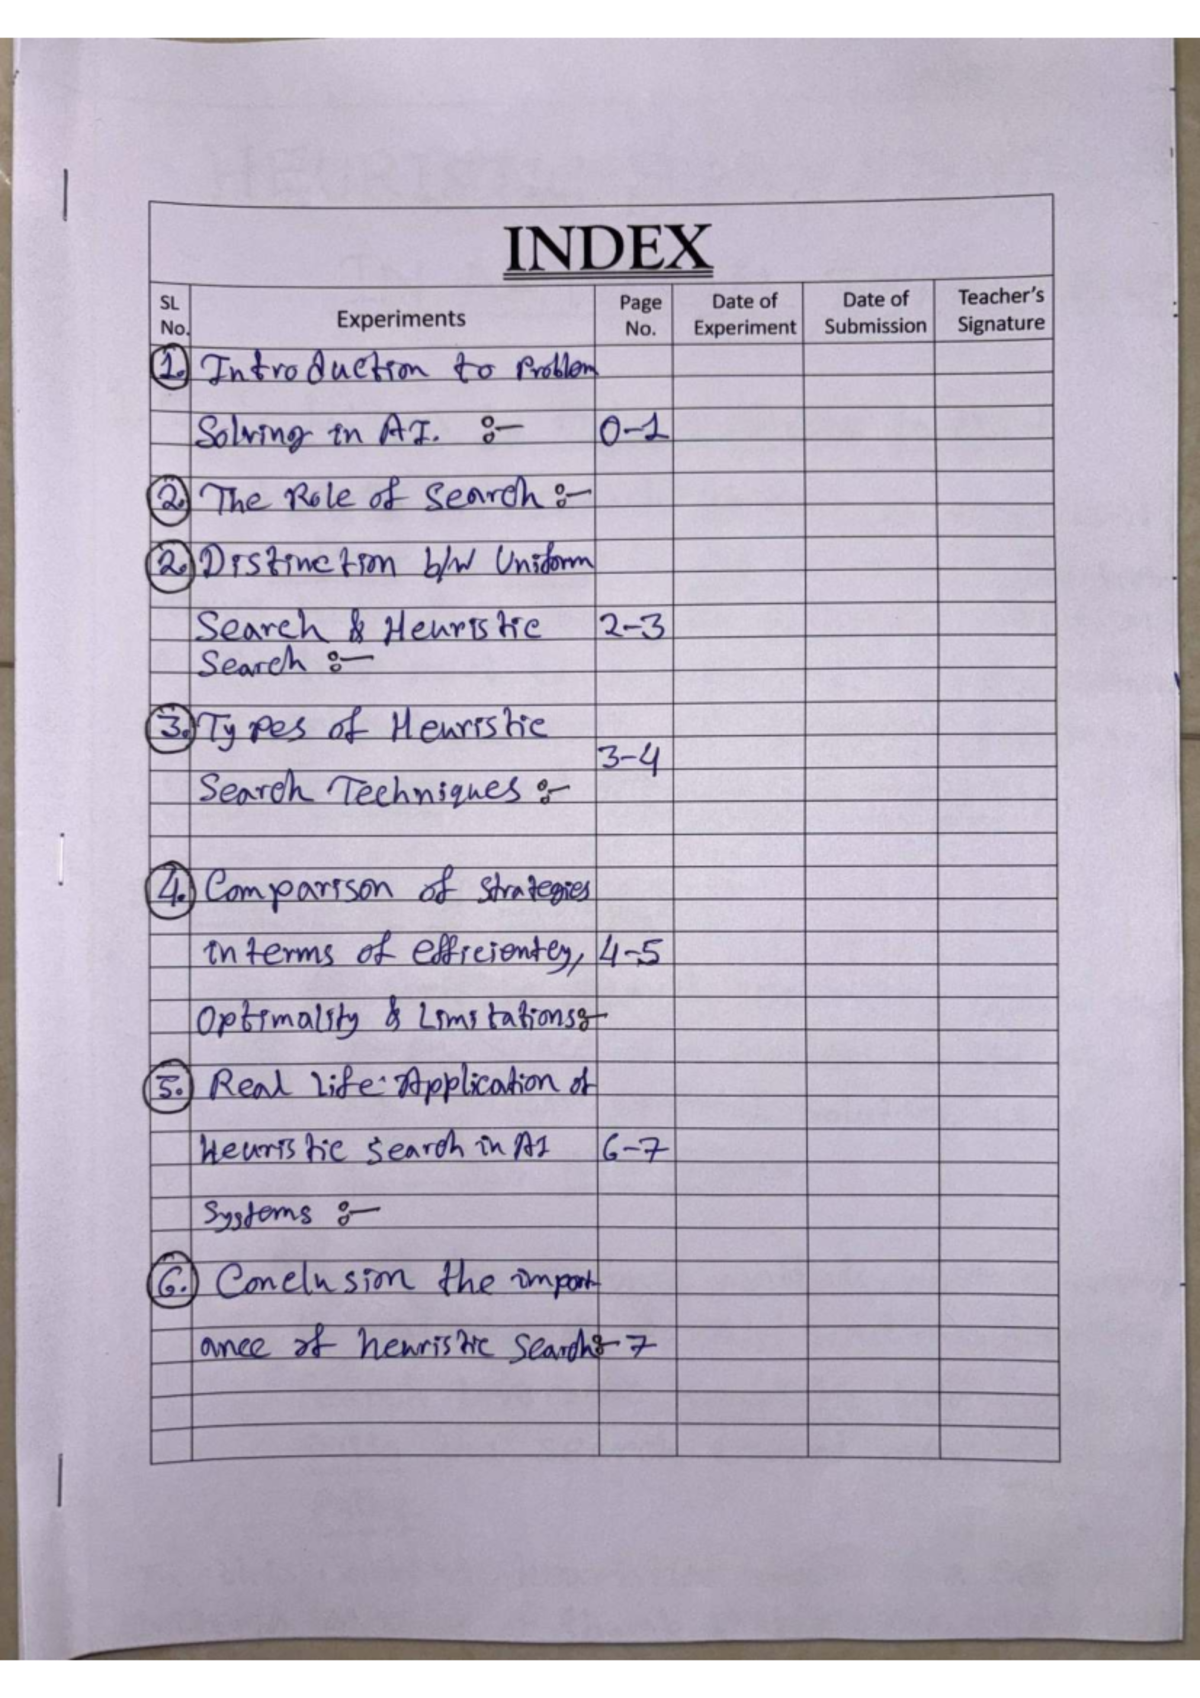 INDEX
SL No. Experiments Page No. Date of Experiment Date of Submission Teacher's Signature
1. Introduction to Problem
Solving in AI. :- 0-1
2. The Role of Search :-
2. Distinction b/w Uniform
Search & Heuristic 2-3
Search :-
3. Types of Heuristic
3-4
Search Techniques :-
4. Comparison of Strategies
in terms of efficientcy, 4-5
Optimality & Limitations:-
5. Real life Application of
Heuristic Search in AI 6-7
Systems :-
6. Conclusion the import-
ance of heuristic Search:- 7